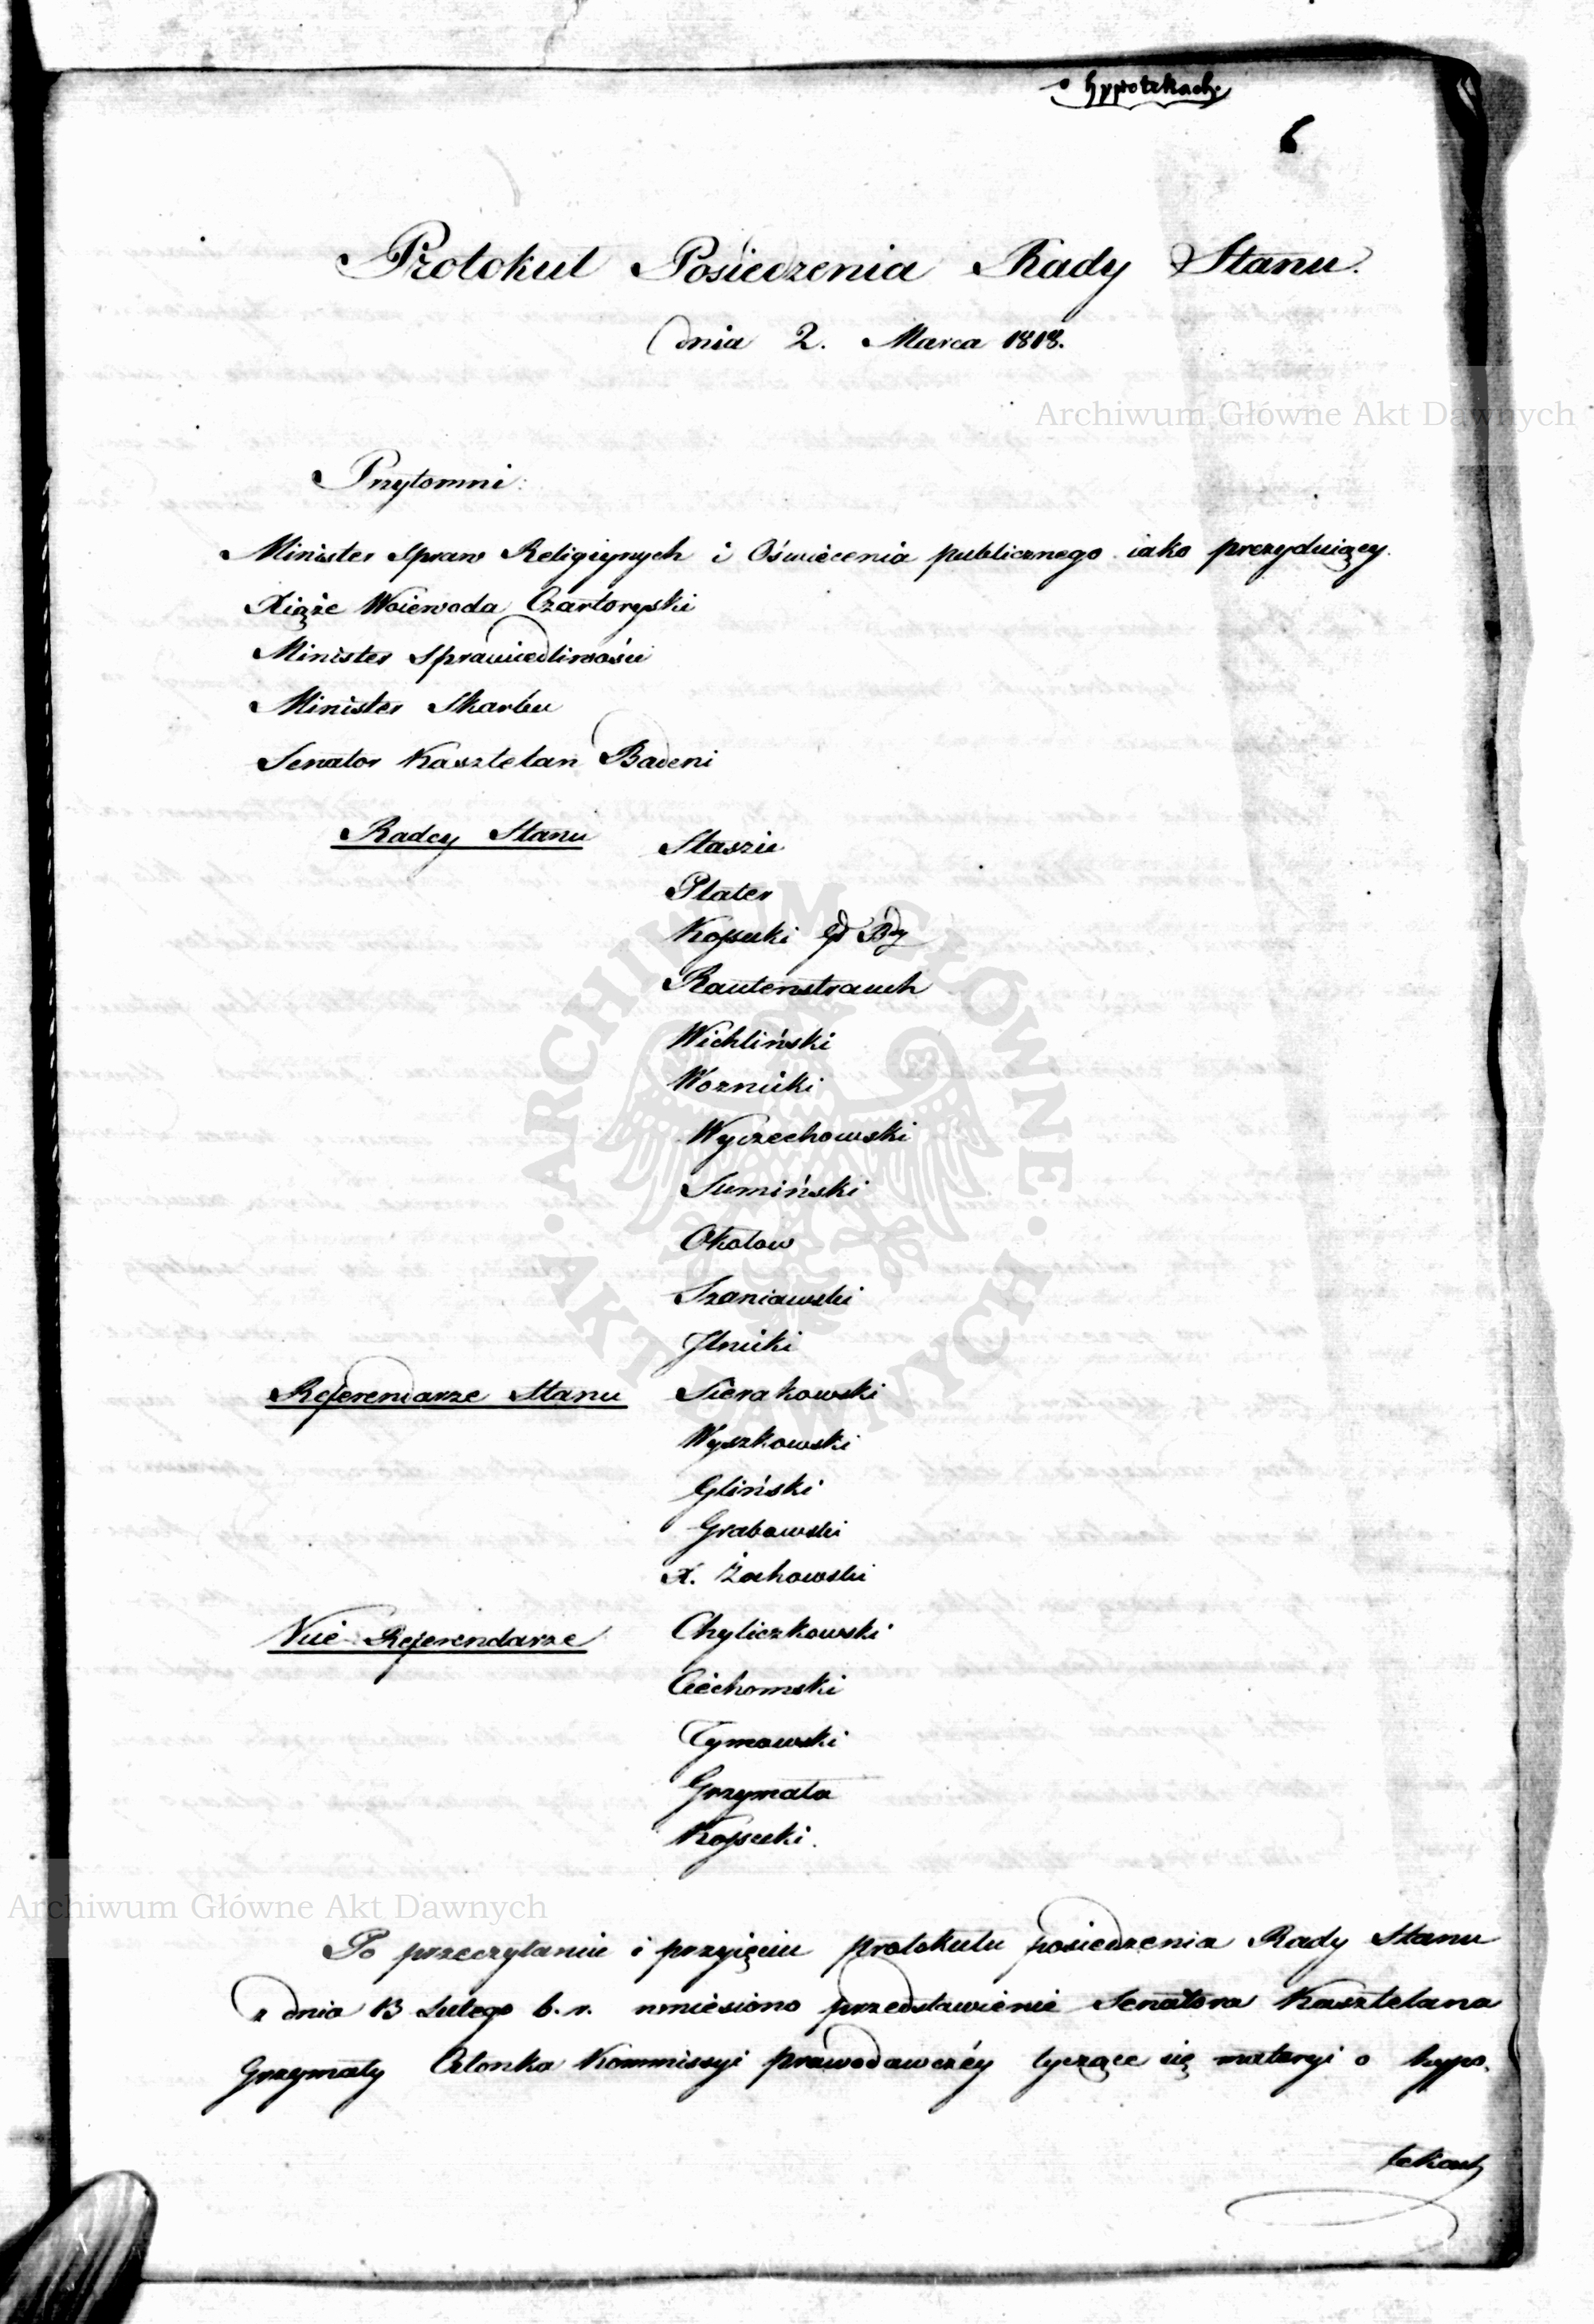 o hypotekach
6
Protokuł Posiedzenia Rady Stanu.
dnia 2. Marca 1818.
Archiwum Główne Akt Dawnych
Przytomni:
Minister Spraw Religiynych i Oświecenia publicznego iako prezyduiący.
Xiąże Woiewoda Czartoryski
Minister Sprawiedliwości
Minister Skarbu
Senator Kasztelan Badeni
Radcy Stanu Staszic
Plater
Kossecki
Rautenstrauch
Wichliński
Woznicki
Wyczechowski
Sumiński
Okołow
Szaniawski
Ilnicki
Referendarze Stanu Sierakowski
Wyszkowski
Gliński
Grabowski
X. Żochowski
Vice Referendarze Chyliczkowski
Ciechomski
Tymowski
Grzymała
Kossecki.
ARCHIWUM GŁÓWNE · AKT DAWNYCH ·
Archiwum Główne Akt Dawnych
Po przeczytaniu i przyięciu protokułu posiedzenia Rady Stanu
z dnia 13 Lutego b. r. wniesiono przedstawienie Senatora Kasztelana
Grzymały Członka Kommissyi prawodawczéy tyczące się materyi o hypo-
tekach